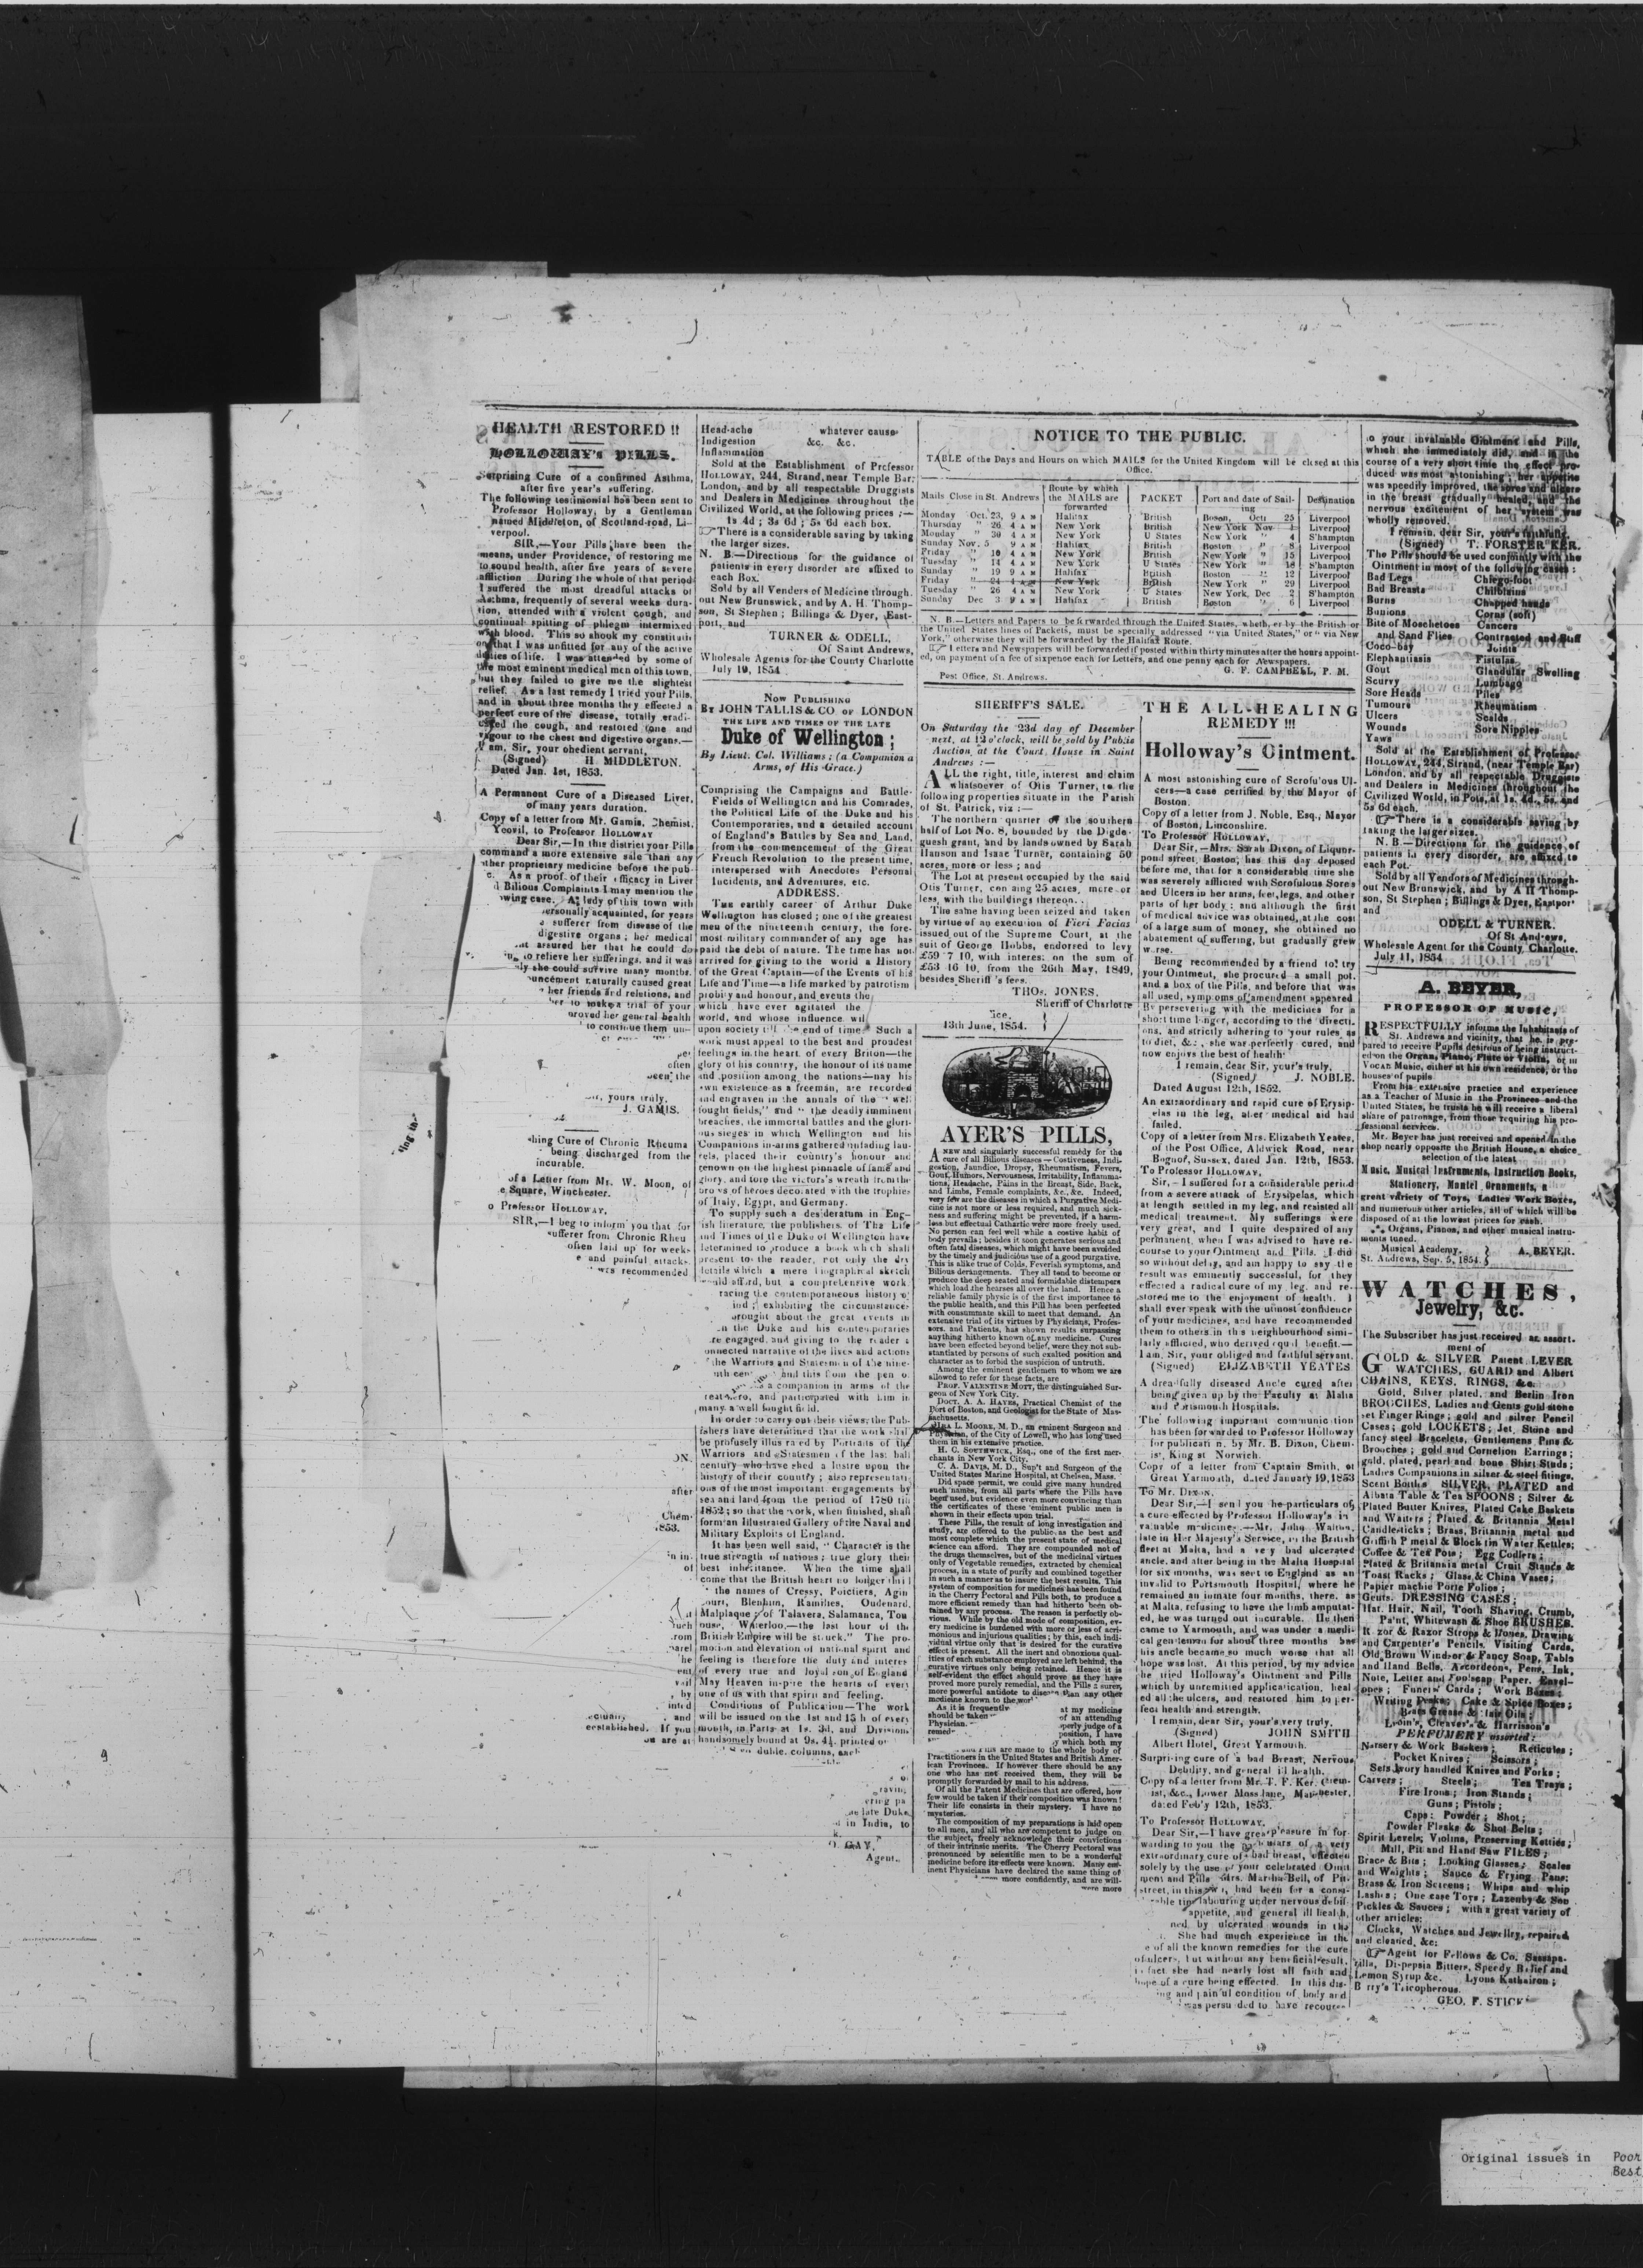 HEALTH RESTORED !!
HOLLOWAY's PILLS.
Surprising Cure of a confirmed Asthma,
after five year's suffering.
The following testimonial has been sent to
Professor Holloway, by a Gentleman
named Middleton, of Scotland-road, Li-
verpool.
SIR,—Your Pills have been the
means, under Providence, of restoring me
to sound health, after five years of severe
affliction During the whole of that period
I suffered the most dreadful attacks of
Asthma, frequently of several weeks dura-
tion, attended with a violent cough, and
continual spitting of phlegm intermixed
with blood. This so shook my constituti
on that I was unfitted for any of the active
duties of life. I was attended by some of
the most eminent medical men of this town,
but they failed to give me the slightest
relief. As a last remedy I tried your Pills,
and in about three months they effected a
perfect cure of the disease, totally eradi-
cated the cough, and restored tone and
vigour to the chest and digestive organs.—
I am, Sir, your obedient servant,
(Signed) H. MIDDLETON.
Dated Jan. 1st, 1853.
A Permanent Cure of a Diseased Liver,
of many years duration.
Copy of a letter from Mr. Gamis, Chemist,
Yeovil, to Professor HOLLOWAY
Dear Sir,—In this district your Pills
command a more extensive sale than any
other proprietary medicine before the pub-
c. As a proof of their efficacy in Liver
d Bilious Complaints I may mention the
wing case. A lady of this town with
ersonally acquainted, for years
e sufferer from disease of the
digestive organs; her medical
assured her that he could do
to relieve her sufferings, and it was
ly she could survive many months.
ouncement naturally caused great
her friends and relations, and
her to make a trial of your
proved her general health
to continue them un-
per
often
been the
yours truly,
J. GAMIS.
hing Cure of Chronic Rheuma
being discharged from the
incurable.
of a Letter from Mr. W. Moon, of
e Square, Winchester.
o Professor HOLLOWAY,
SIR,—I beg to inform you that for
sufferer from Chronic Rheu
often laid up for weeks
e and painful attacks
was recommended
ON.
after
Chem-
1853.
and
established. If you
are at
Head-ache whatever cause
Indigestion &c. &c.
Inflammation
Sold at the Establishment of Professor
HOLLOWAY, 244, Strand, near Temple Bar,
London, and by all respectable Druggists
and Dealers in Medicines throughout the
Civilized World, at the following prices ;—
1s 4d ; 3s 6d ; 5s 6d each box.
There is a considerable saving by taking
the larger sizes.
N. B.—Directions for the guidance of
patients in every disorder are affixed to
each Box.
Sold by all Venders of Medicine through-
out New Brunswick, and by A. H. Thomp-
son, St Stephen ; Billings & Dyer, East-
port, and
TURNER & ODELL,
Of Saint Andrews,
Wholesale Agents for the County Charlotte
July 19, 1854
NOW PUBLISHING
BY JOHN TALLIS & CO. OF LONDON
THE LIFE AND TIMES OF THE LATE
Duke of Wellington ;
By Lieut. Col. Williams ; (a Companion a
Arms, of His Grace.)
Comprising the Campaigns and Battle-
Fields of Wellington and his Comrades,
the Political Life of the Duke and his
Contemporaries, and a detailed account
of England's Battles by Sea and Land,
from the commencement of the Great
French Revolution to the present time,
interspersed with Anecdotes Personal
Incidents, and Adventures, etc.
ADDRESS.
THE earthly career of Arthur Duke
Wellington has closed ; one of the greatest
men of the nineteenth century, the fore-
most military commander of any age has
paid the debt of nature. The time has not
arrived for giving to the world a History
of the Great Captain—of the Events of his
Life and Time—a life marked by patriotism
probity and honour, and events the
which have ever agitated the
world, and whose influence wil
upon society till the end of time. Such a
work must appeal to the best and proudest
feelings in the heart of every Briton—the
glory of his country, the honour of its name
and position among the nations—nay his
own existence as a freeman, are recorded
and engraven in the annals of the "well
fought fields," and "the deadly imminent
breaches, the immortal battles and the glori-
ous sieges in which Wellington and his
Companions in-arms gathered unfading lau-
rels, placed their country's honour and
renown on the highest pinnacle of fame and
glory, and tore the victors's wreath from the
brows of heroes decorated with the trophies
of Italy, Egypt, and Germany.
To supply such a desideratum in Eng-
ish literature, the publishers of The Life
and Times of the Duke of Wellington have
determined to produce a book which shall
present to the reader, not only the dry
details which a mere biographical sketch
would afford, but a comprehensive work,
racing the contemporaneous history of
ind ; exhibiting the circumstances
brought about the great events in
n the Duke and his contemporaries
re engaged, and giving to the reader a
onnected narrative of the lives and actions
the Warriors and Statesmen of the nine-
and this from the pen o
a companion in arms of the
reat hero, and participated with him in
many a well fought field.
In order to carry out their views, the Pub-
ishers have determined that the work shall
be profusely illustrated by Portraits of the
Warriors and Statesmen of the last half
century who have shed a lustre upon the
history of their country ; also representati
ons of the most important engagements by
sea and land from the period of 1780 till
1852 ; so that the work, when finished, shall
form an Illustrated Gallery of the Naval and
Military Exploits of England.
It has been well said, "Character is the
true strength of nations ; true glory their
best inheritance. When the time shall
come that the British heart no longer
the names of Cressy, Poictiers, Agin
ourt, Blenheim, Ramilies, Oudenard,
Malplaque ; of Talavera, Salamanca, Tou
ouse, Waterloo,—the last hour of the
British Empire will be struck." The pro-
motion and elevation of national spirit and
feeling is therefore the duty and interes
of every true and loyal son of England
May Heaven inspire the hearts of every
one of us with that spirit and feeling.
Conditions of Publication—The work
will be issued on the 1st and 15h of every
month, in Parts at 1s. 3d, and Divisions
handsomely bound at 9s. printed o
duble. columns, each
late Duke
in India, to
O. GAY,
Agent.
NOTICE TO THE PUBLIC.
TABLE of the Days and Hours on which MAILS for the United Kingdom will be closed at this
Office.
Mails Close in St. Andrews Route by which the MAILS are forwarded PACKET Port and date of Sail-ing Destination
Monday Oct. 23, 9 A M Halifax British Boston, Oct 25 Liverpool
Thursday " 26 4 A M New York British New York Nov 1 Liverpool
Monday " 30 4 A M New York U States New York " 4 S'hampton
Sunday Nov. 5 9 A M Halifax British Boston " 8 Liverpool
Friday " 10 4 A M New York British New York " 15 Liverpool
Tuesday " 14 4 A M New York U States New York " 18 S'hampton
Sunday " 19 9 A M Halifax British Boston " 12 Liverpool
Friday " 24 4 A M New York British New York " 29 Liverpool
Tuesday " 26 4 A M New York U States New York, Dec 2 S'hampton
Sunday Dec 3 9 A M Halifax British Boston " 6 Liverpool
N. B.—Letters and Papers to be forwarded through the United States, wheth, er by the British or
the United States lines of Packets, must be specially addressed "via United States," or "via New
York," otherwise they will be forwarded by the Halifax Route.
Letters and Newspapers will be forwarded if posted within thirty minutes after the hours appoint-
ed, on payment of a fee of sixpence each for Letters, and one penny each for Newspapers.
G. F. CAMPBELL, P. M.
Post Office, St. Andrews.
SHERIFF'S SALE.
On Saturday the 23d day of December
next, at 12 o'clock, will be sold by Public
Auction at the Court House in Saint
Andrews :—
ALL the right, title, interest and claim
whatsoever of Otis Turner, to the
following properties situate in the Parish
of St. Patrick, viz :—
The northern quarter of the southern
half of Lot No. 8, bounded by the Digde-
guesh grant, and by lands owned by Sarah
Hanson and Isaac Turner, containing 50
acres, more or less ; and
The Lot at present occupied by the said
Otis Turner, con aing 25 acres, more or
less, with the buildings thereon.
The same having been seized and taken
by virtue of an execution of Fieri Facias
issued out of the Supreme Court, at the
suit of George Hobbs, endorsed to levy
£59 7 10, with interest on the sum of
£53 16 10, from the 26th May, 1849,
besides Sheriff's fees.
THOs. JONES,
Sheriff of Charlotte
ice.
13th June, 1854.
AYER'S PILLS,
A NEW and singularly successful remedy for the
cure of all Bilious diseases — Costiveness, Indi-
gestion, Jaundice, Dropsy, Rheumatism, Fevers,
Gout, Humors, Nervousness, Irritability, Inflamma-
tions, Headache, Pains in the Breast, Side, Back,
and Limbs, Female complaints, &c., &c. Indeed,
very few are the diseases in which a Purgative Medi-
cine is not more or less required, and much sick-
ness and suffering might be prevented, if a harm-
less but effectual Cathartic were more freely used.
No person can feel well while a costive habit of
body prevails ; besides it soon generates serious and
often fatal diseases, which might have been avoided
by the timely and judicious use of a good purgative.
This is alike true of Colds, Feverish symptoms, and
Bilious derangements. They all tend to become or
produce the deep seated and formidable distempers
which load the hearses all over the land. Hence a
reliable family physic is of the first importance to
the public health, and this Pill has been perfected
with consummate skill to meet that demand. An
extensive trial of its virtues by Physicians, Profes-
sors, and Patients, has shown results surpassing
anything hitherto known of any medicine. Cures
have been effected beyond belief, were they not sub-
stantiated by persons of such exalted position and
character as to forbid the suspicion of untruth.
Among the eminent gentlemen to whom we are
allowed to refer for these facts, are
PROF. VALENTINE MOTT, the distinguished Sur-
geon of New York City.
DOCT. A. A. HAYES, Practical Chemist of the
Port of Boston, and Geologist for the State of Mas-
sachusetts.
IRA L. MOORE, M. D., an eminent Surgeon and
Physician, of the City of Lowell, who has long used
them in his extensive practice.
H. C. SOUTHWICK, Esq., one of the first mer-
chants in New York City.
C. A. DAVIS, M. D., Sup't and Surgeon of the
United States Marine Hospital, at Chelsea, Mass.
Did space permit, we could give many hundred
such names, from all parts where the Pills have
been used, but evidence even more convincing than
the certificates of these eminent public men is
shown in their effects upon trial.
These Pills, the result of long investigation and
study, are offered to the public as the best and
most complete which the present state of medical
science can afford. They are compounded not of
the drugs themselves, but of the medicinal virtues
only of Vegetable remedies, extracted by chemical
process, in a state of purity and combined together
in such a manner as to insure the best results. This
system of composition for medicines has been found
in the Cherry Pectoral and Pills both, to produce a
more efficient remedy than had hitherto been ob-
tained by any process. The reason is perfectly ob-
vious. While by the old mode of composition, ev-
ery medicine is burdened with more or less of acri-
monious and injurious qualities ; by this, each indi-
vidual virtue only that is desired for the curative
effect is present. All the inert and obnoxious qual-
ities of each substance employed are left behind, the
curative virtues only being retained. Hence it is
self-evident the effect should prove as they have
proved more purely remedial, and the Pills a surer,
more powerful antidote to disease than any other
medicine known to the worl
As it is frequently at my medicine
should be taken of an attending
Physician. perly judge of a
remed- position, I have
y which both my
are made to the whole body of
Practitioners in the United States and British Amer-
ican Provinces. If however there should be any
one who has not received them, they will be
promptly forwarded by mail to his address.
Of all the Patent Medicines that are offered, how
few would be taken if their composition was known !
Their life consists in their mystery. I have no
mysteries.
The composition of my preparations is laid open
to all men, and all who are competent to judge on
the subject, freely acknowledge their convictions
of their intrinsic merits. The Cherry Pectoral was
pronounced by scientific men to be a wonderful
medicine before its effects were known. Many emi-
nent Physicians have declared the same thing of
more confidently, and are will-
were more
THE ALL-HEALING
REMEDY !!!
Holloway's Ointment.
A most astonishing cure of Scrofulous Ul-
cers—a case certified by the Mayor of
Boston.
Copy of a letter from J. Noble, Esq., Mayor
of Boston, Linconshire.
To Professor HOLLOWAY,
Dear Sir,—Mrs. Sarah Dixon, of Liquor-
pond street, Boston, has this day deposed
before me, that for a considerable time she
was severely afflicted with Scrofulous Sores
and Ulcers in her arms, feet, legs, and other
parts of her body ; and although the first
of medical advice was obtained, at the cost
of a large sum of money, she obtained no
abatement of suffering, but gradually grew
worse.
Being recommended by a friend to try
your Ointment, she procured a small pot,
and a box of the Pills, and before that was
all used, symptoms of amendment appeared
By persevering with the medicines for a
short time longer, according to the directi-
ons, and strictly adhering to your rules as
to diet, &c., she was perfectly cured, and
now enjoys the best of health
I remain, dear Sir, your's truly,
(Signed) J. NOBLE.
Dated August 12th, 1852.
An extraordinary and rapid cure of Erysip-
elas in the leg, after medical aid had
failed.
Copy of a letter from Mrs. Elizabeth Yeates,
of the Post Office, Aldwick Road, near
Bognor, Sussex, dated Jan. 12th, 1853.
To Professor HOLLOWAY,
Sir,—I suffered for a considerable period
from a severe attack of Erysipelas, which
at length settled in my leg, and resisted all
medical treatment. My sufferings were
very great, and I quite despaired of any
permanent, when I was advised to have re-
course to your Ointment and Pills. I did
so without delay, and am happy to say the
result was eminently successful, for they
effected a radical cure of my leg, and re-
stored me to the enjoyment of health. I
shall ever speak with the utmost confidence
of your medicines, and have recommended
them to others in this neighbourhood simi-
larly afflicted, who derived equal benefit.—
I am, Sir, your obliged and faithful servant,
(Signed) ELIZABETH YEATES
A dreadfully diseased Ancle cured after
being given up by the Faculty at Malta
and Portsmouth Hospitals.
The following important communication
has been forwarded to Professor Holloway
for publication, by Mr. B. Dixon, Chem-
ist, King st Norwich.
Copy of a letter from Captain Smith, of
Great Yarmouth, dated January 19, 1853
To Mr. DIXON,
Dear Sir,—I send you he particulars of
a cure effected by Professor Holloway's in
valuable medicines.—Mr. John Walton,
late in Her Majesty's Service, in the British
fleet at Malta, had a very bad ulcerated
ancle, and after being in the Malta Hospital
for six months, was sent to England as an
invalid to Portsmouth Hospital, where he
remained an inmate four months, there, as
at Malta, refusing to have the limb amputat-
ed, he was turned out incurable. He then
came to Yarmouth, and was under a medi-
cal gentleman for about three months but
his ancle became so much worse that all
hope was lost. At this period, by my advice
he tried Holloway's Ointment and Pills
which by unremitted application, heal
ed all the ulcers, and restored him to per-
fect health and strength.
I remain, dear Sir, your's very truly,
(Signed) JOHN SMITH
Albert Hotel, Great Yarmouth.
Surprising cure of a bad Breast, Nervous
Debility, and general ill health.
Copy of a letter from Mr. T. F. Ker, Chem-
ist, &c., Lower Moss lane, Manchester,
dated Feb'y 12th, 1853.
To Professor HOLLOWAY,
Dear Sir,—I have great pleasure in for
warding to you the particulars of a very
extraordinary cure of a bad breast, effected
solely by the use of your celebrated Oint
ment and Pills Mrs. Martha Bell, of Pitt
street, in this had been for a consi-
time labouring under nervous debil
appetite, and general ill health,
ned by ulcerated wounds in the
She had much experience in the
e of all the known remedies for the cure
of ulcers, but without any beneficial result,
fact she had nearly lost all faith and
hope of a cure being effected. In this dis-
ing and painful condition of body and
was persuaded to have recourse
to your invaluable Ointment and Pills,
which she immediately did, and in the
course of a very short time the effect pro-
duced was most astonishing ; her appetite
was speedily improved, the sores and ulcers
in the breast gradually healed, and the
nervous excitement of her system was
wholly removed.
I remain, dear Sir, your's faithfully,
(Signed) T. FORSTER KER.
The Pills should be used conjointly with the
Ointment in most of the following cases :
Bad Legs Chiego-foot
Bad Breasts Chilblains
Burns Chapped hands
Bunions Corns (soft)
Bite of Moschetoes Cancers
and Sand Flies Contracted and Stiff
Coco-bay Joints
Elephantiasis Fistulas
Gout Glandular Swelling
Scurvy Lumbago
Sore Heads Piles
Tumours Rheumatism
Ulcers Scalds
Wounds Sore Nipples
Yaws
Sold at the Establishment of Professor
HOLLOWAY, 244, Strand, (near Temple Bar)
London, and by all respectable Druggists
and Dealers in Medicines throughout the
Civilized World, in Pots, at 1s. 4d., 5s. and
5s 6d each.
There is a considerable saving by
taking the larger sizes.
N. B.—Directions for the guidance of
patients in every disorder, are affixed to
each Pot.
Sold by all Vendors of Medicines through-
out New Brunswick, and by A H Thomp-
son, St Stephen ; Billings & Dyer, Eastpor
and
ODELL & TURNER.
Of St Andrews,
Wholesale Agent for the County Charlotte.
July 11, 1854
A. BEYER,
PROFESSOR OF MUSIC,
RESPECTFULLY informs the Inhabitants of
St. Andrews and vicinity, that he is pre-
pared to receive Pupils desirous of being instruct-
ed on the Organ, Piano, Flute or Violin, or in
VOCAL MUSIC, either at his own residence, or the
houses of pupils
From his extensive practice and experience
as a Teacher of Music in the Provinces and the
United States, he trusts he will receive a liberal
share of patronage, from those requiring his pro-
fessional services.
Mr. Beyer has just received and opened in the
shop nearly opposite the British House, a choice
selection of the latest
Music, Musical Instruments, Instruction Books,
Stationery, Mantel Ornaments, a
great variety of Toys, Ladies Work Boxes,
and numerous other articles, all of which will be
disposed of at the lowest prices for cash.
Organs, Pianos, and other musical instru-
ments tuned.
Musical Academy. A. BEYER.
St. Andrews, Sep. 5, 1854.
WATCHES,
Jewelry, &c.
The Subscriber has just received an assort.
ment of
GOLD & SILVER Patent LEVER
WATCHES, GUARD and Albert
CHAINS, KEYS, RINGS, &c.
Gold, Silver plated, and Berlin Iron
BROOCHES, Ladies and Gents gold stone
set Finger Rings ; gold and silver Pencil
Cases ; gold LOCKETS ; Jet, Stone and
fancy steel Bracelets, Gentlemens Pins &
Brooches ; gold and Cornelion Earrings ;
gold, plated, pearl and bone Shirt Studs ;
Ladies Companions in silver & steel fitings,
Scent Bottles SILVER, PLATED and
Albata Table & Tea SPOONS ; Silver &
Plated Butter Knives, Plated Cake Baskets
and Waiters ; Plated & Britannia Metal
Candlesticks ; Brass, Britannia metal and
Griffith P metal & Block tin Water Kettles;
Coffee & Tea Pots ; Egg Codlers ;
Plated & Britannia metal Cruit Stands &
Toast Racks ; Glass & China Vases ;
Papier machie Porte Folios ;
Gents. DRESSING CASES ;
Hat, Hair, Nail, Tooth Shaving, Crumb,
Paint, Whitewash & Shoe BRUSHES.
Razor & Razor Strops & Hones, Drawing
and Carpenter's Pencils, Visiting Cards,
Old Brown Windsor & Fancy Soap, Table
and Hand Bells, Accordeons, Pens, Ink,
Note, Letter and Foolscap Paper. Envel-
opes ; Funeral Cards ; Work Boxes ;
Writing Desks ; Cake & Spice Boxes ;
Bears Grease & Hair Oils ;
Lubin's, Cleaver's & Harrisson's
PERFUMERY assorted ;
Nursery & Work Baskets ; Reticules ;
Pocket Knives ; Scissors ;
Sets Ivory handled Knives and Forks ;
Carvers ; Steels ; Tea Trays ;
Fire Irons ; Iron Stands ;
Guns ; Pistols ;
Caps ; Powder ; Shot ;
Powder Flasks & Shot Belts ;
Spirit Levels, Violins, Preserving Kettles ;
Mill, Pit and Hand Saw FILES ;
Brace & Bits ; Looking Glasses ; Scales
and Weights ; Sauce & Frying Pans;
Brass & Iron Screens ; Whips and whip
Lashes ; One case Toys ; Lazenby & Son
Pickles & Sauces ; with a great variety of
other articles:
Clocks, Watches and Jewellry, repaired
and cleaned, &c:
Agent for Fellows & Co. Sarsapa-
rilla, Dispepsia Bitters, Speedy Relief and
Lemon Syrup &c. Lyons Kathairon ;
Barry's Tricopherous.
GEO. F. STICK
Original issues in Poor
Best